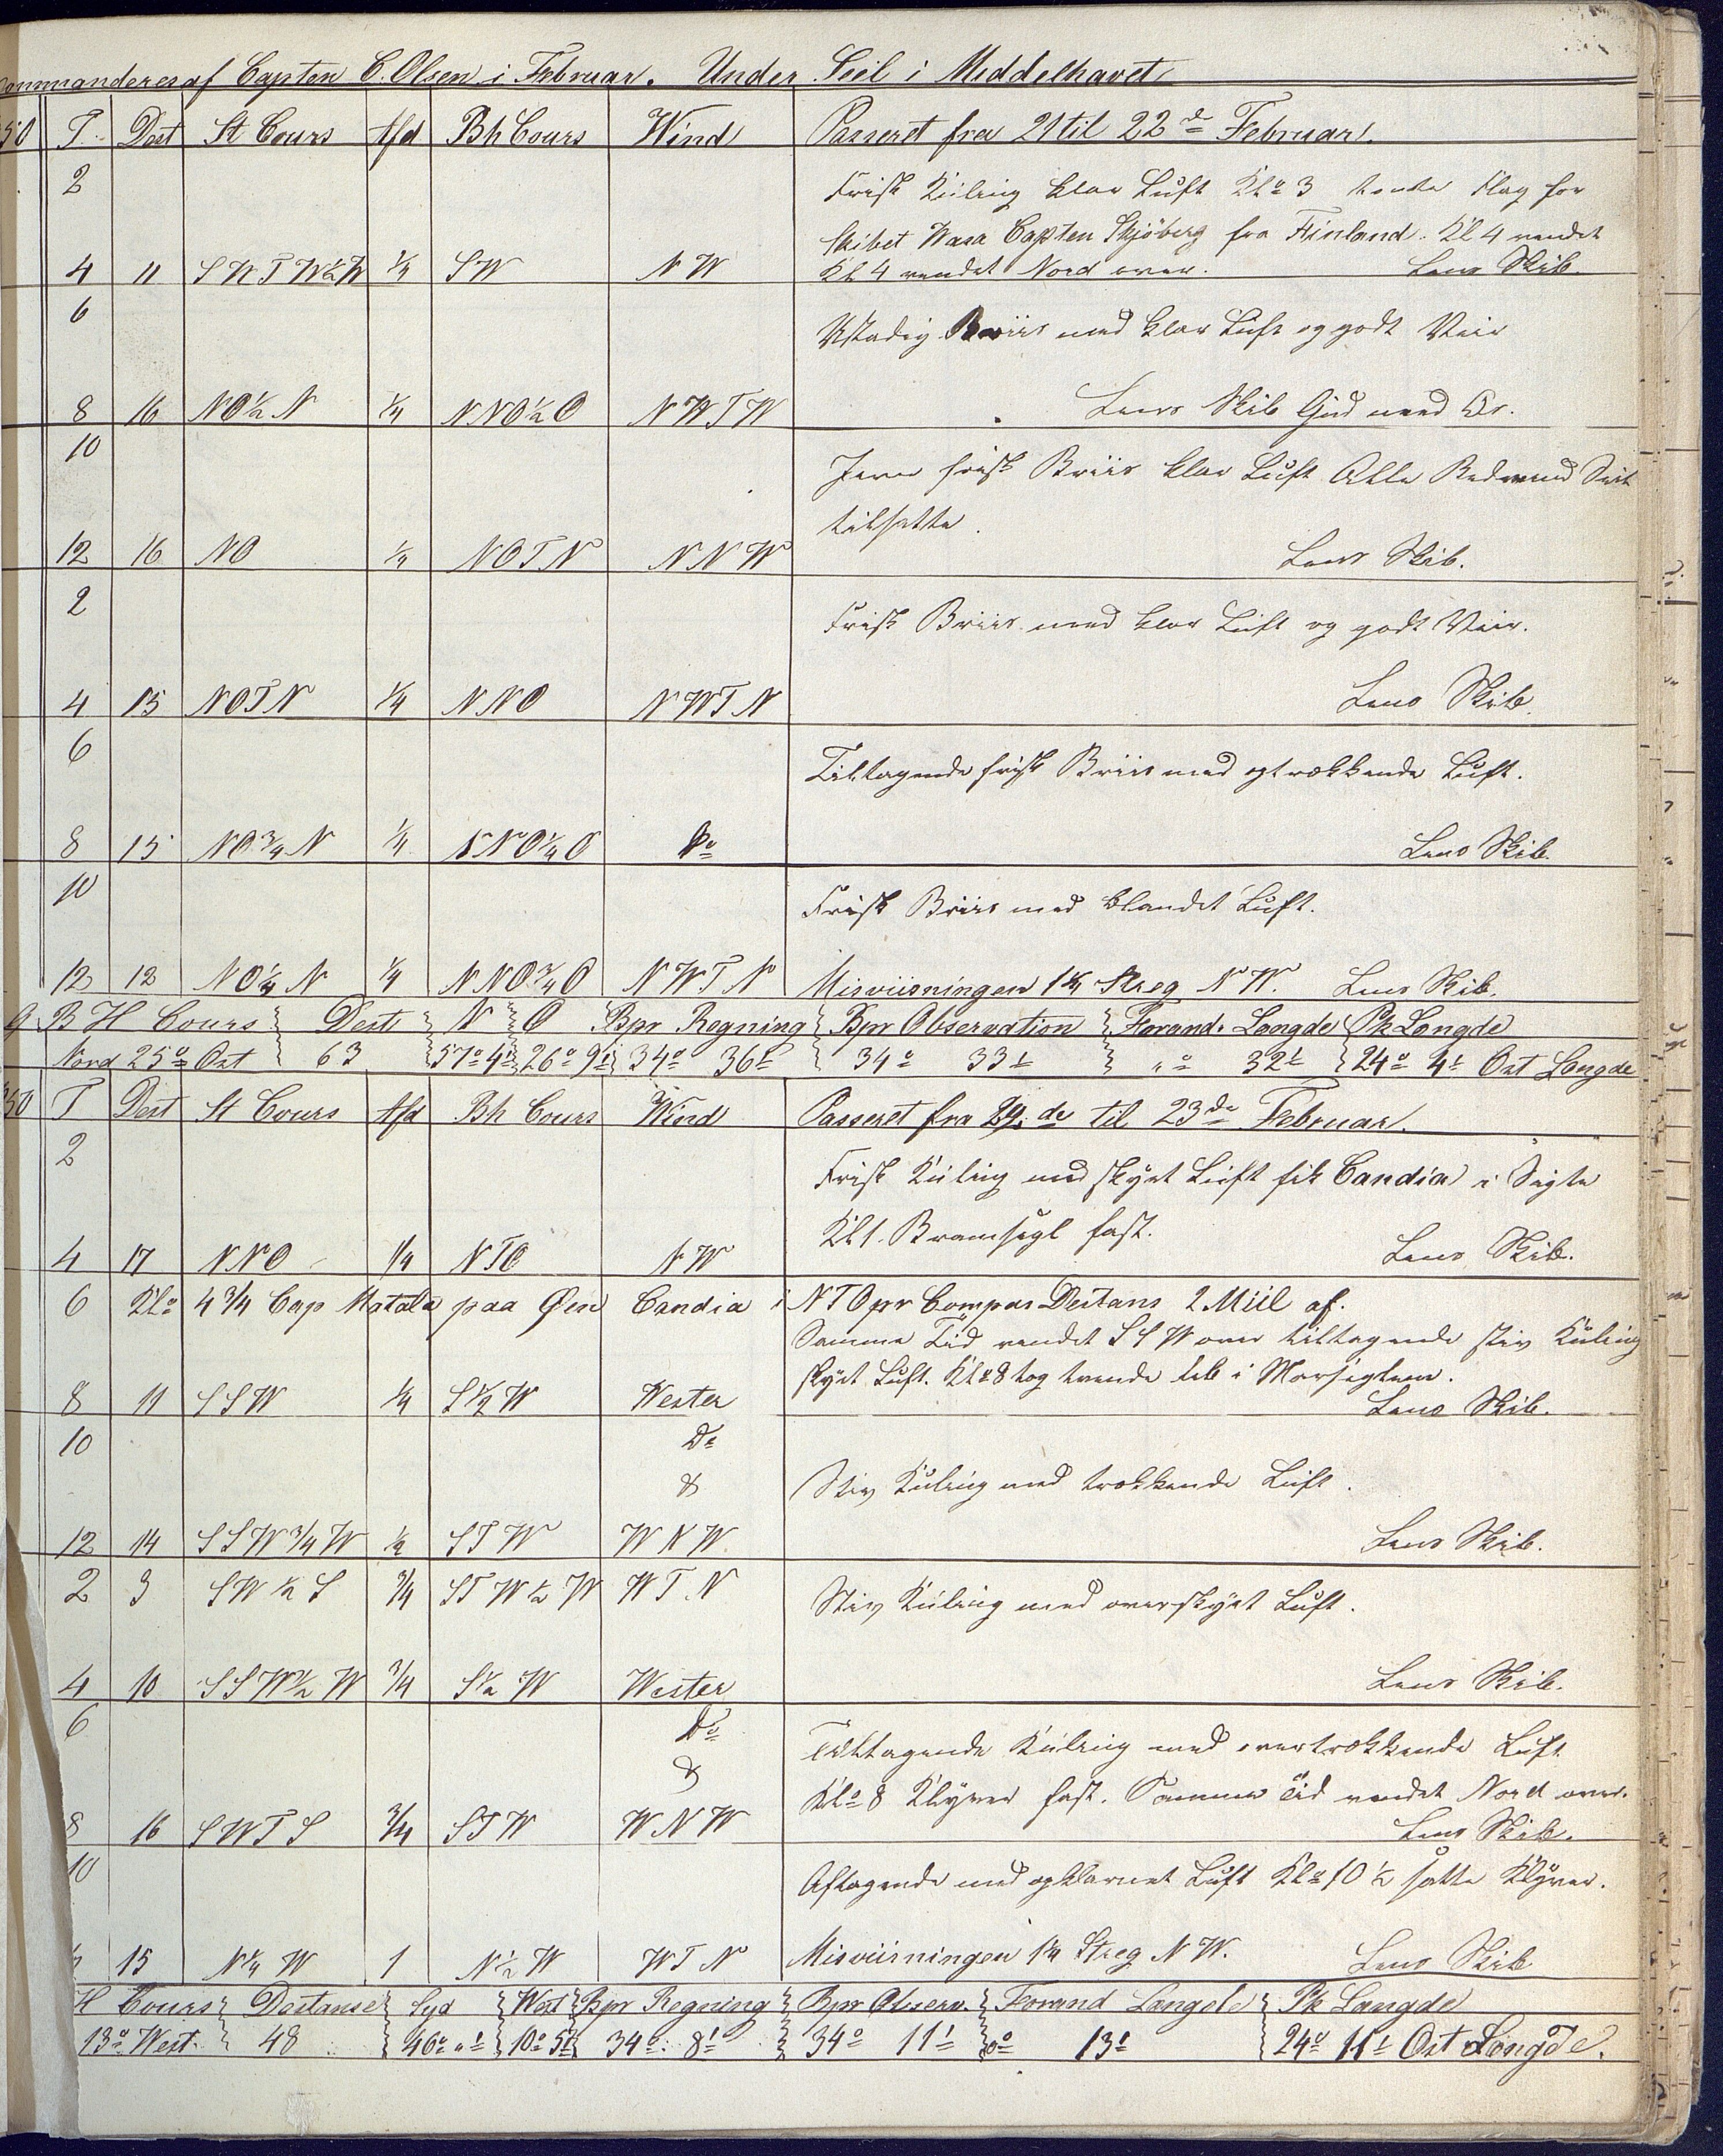 Commanderes af Capten C. Olsen i Februar. Under Seil i Middelhavet
50 T. Dest St Cours Afd Bh Cours Wind Passeret fra 21 til 22de Februar.
2 Frisk Kuling klar Luft Klo 3 Flag for
Skibet Wasa Capten Skjöberg fra Finland. Kl 4 vendet
4 11 SWTW½W ¼ SW NW Kl 4 vendet Nord over. Lens Skib.
6 Ustadig Briis med klar Luft og godt Veir
8 16 NO½N ¼ NNO½O NWTW Lens Skib Gud med Os.
10 Jevn frisk Briis klar Luft Alle Seil
tilsatte.
12 16 NO ¼ NOTN NNW Lens Skib.
2 Frisk Briis med klar Luft og godt Veir.
4 15 NOTN ¼ NNO NWTN Lens Skib.
6 Tiltagende frisk Briis med optrækkende Luft.
8 15 NO¾N ¼ NNO¼O Do Lens Skib.
10 Frisk Briis med blandet Luft.
12 12 NO¼N ¼ NNO¾O NWTN Misviisningen 1¼ Streg NW. Lens Skib.
BH Cours Dest N O Bpr Regning Bpr Observation Forand. Longde Pk Longde
Nord 25° Ost 63 57° 4' 26° 9' 34° 36' 34° 33' "° 32' 24° 4' Ost Longde
50 T Dest St Cours Afd Bh Cours Wind Passeret fra 22de til 23de Februar.
2 Frisk Kuling med skyet Luft fik Candia i Sigte
Kl 1. Bramseyl fast.
4 17 NNO ¼ NTO NW Lens Skib.
6 Klo 4¾ Cap Matala paa Øen Candia i NTO pr Compas Destans 2 Miil af.
Samme Tid vendet SSW over tiltagende stiv Kuling
skyet Luft. Klo 8 tog trende Reb i Merseglene.
8 11 SSW ¼ S½W Wester Lens Skib.
10 Do
& Stiv Kuling med trækkende Luft.
12 14 SSW¾W ½ STW WNW Lens Skib.
2 9 SW½S ¾ STW½W WTN Stiv Kuling med overskyet Luft.
4 10 SSW½W ¾ S½W Wester Lens Skib.
6 Do Tiltagende Kuling med overtrækkende Luft
& Klo 8 Klyver fast. Samme Tid vendet Nord over.
8 16 SWTS ¾ STW WNW Lens Skib.
10 Aftagende med opklarnet Luft Klo 10½ satte Klyver.
15 N¼W 1 N½W WTN Misviisningen 1¼ Streg NW. Lens Skib
H Cours Destanse Syd West Bpr Regning Bpr Observ. Forand Langde Pk Langde
13° West. 48 46° "' 10° 5' 34° 8' 34° 11' 0° 13' 24° 11' Ost Længde.